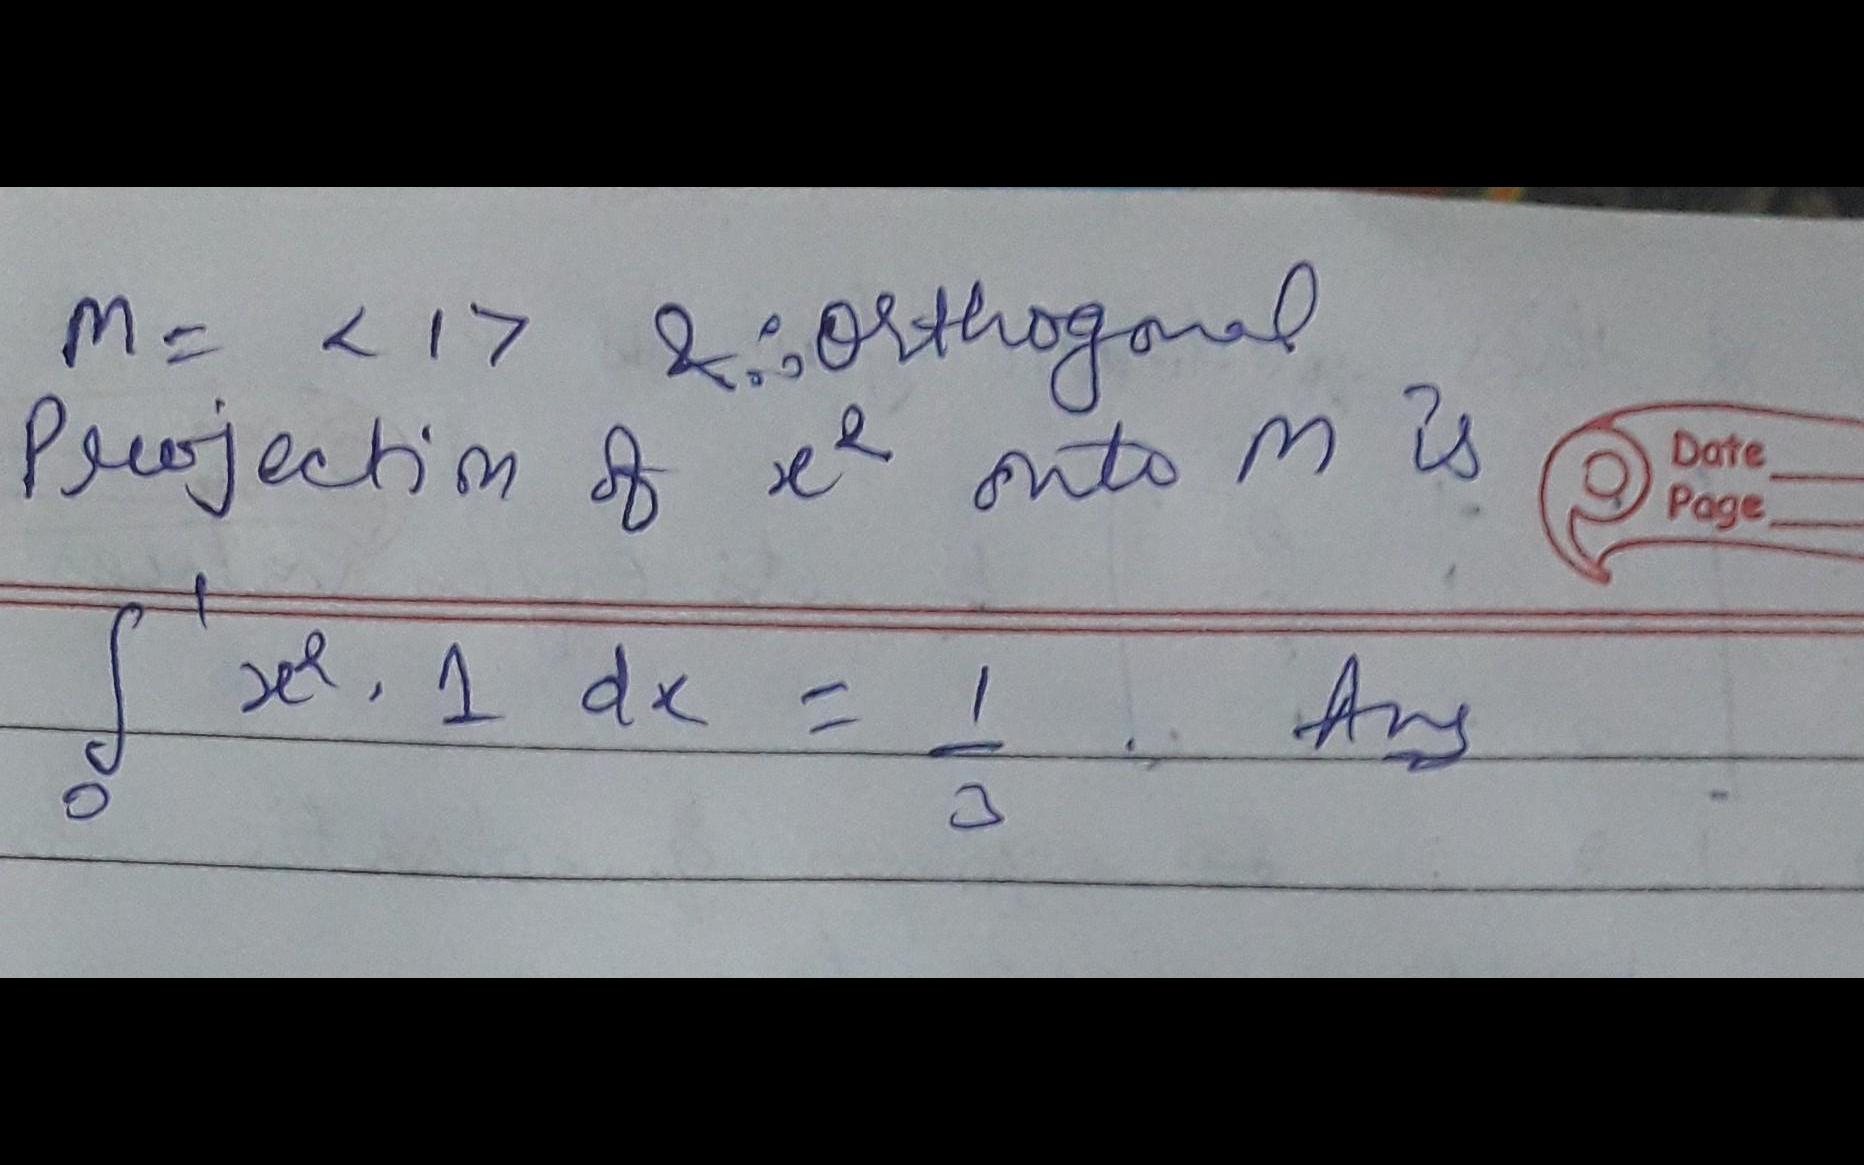 M = < 1 > & ∴ Orthogonal
Projection of x² onto M is
Date
Page
∫₀¹ x². 1 dx = 1/3 . Ans